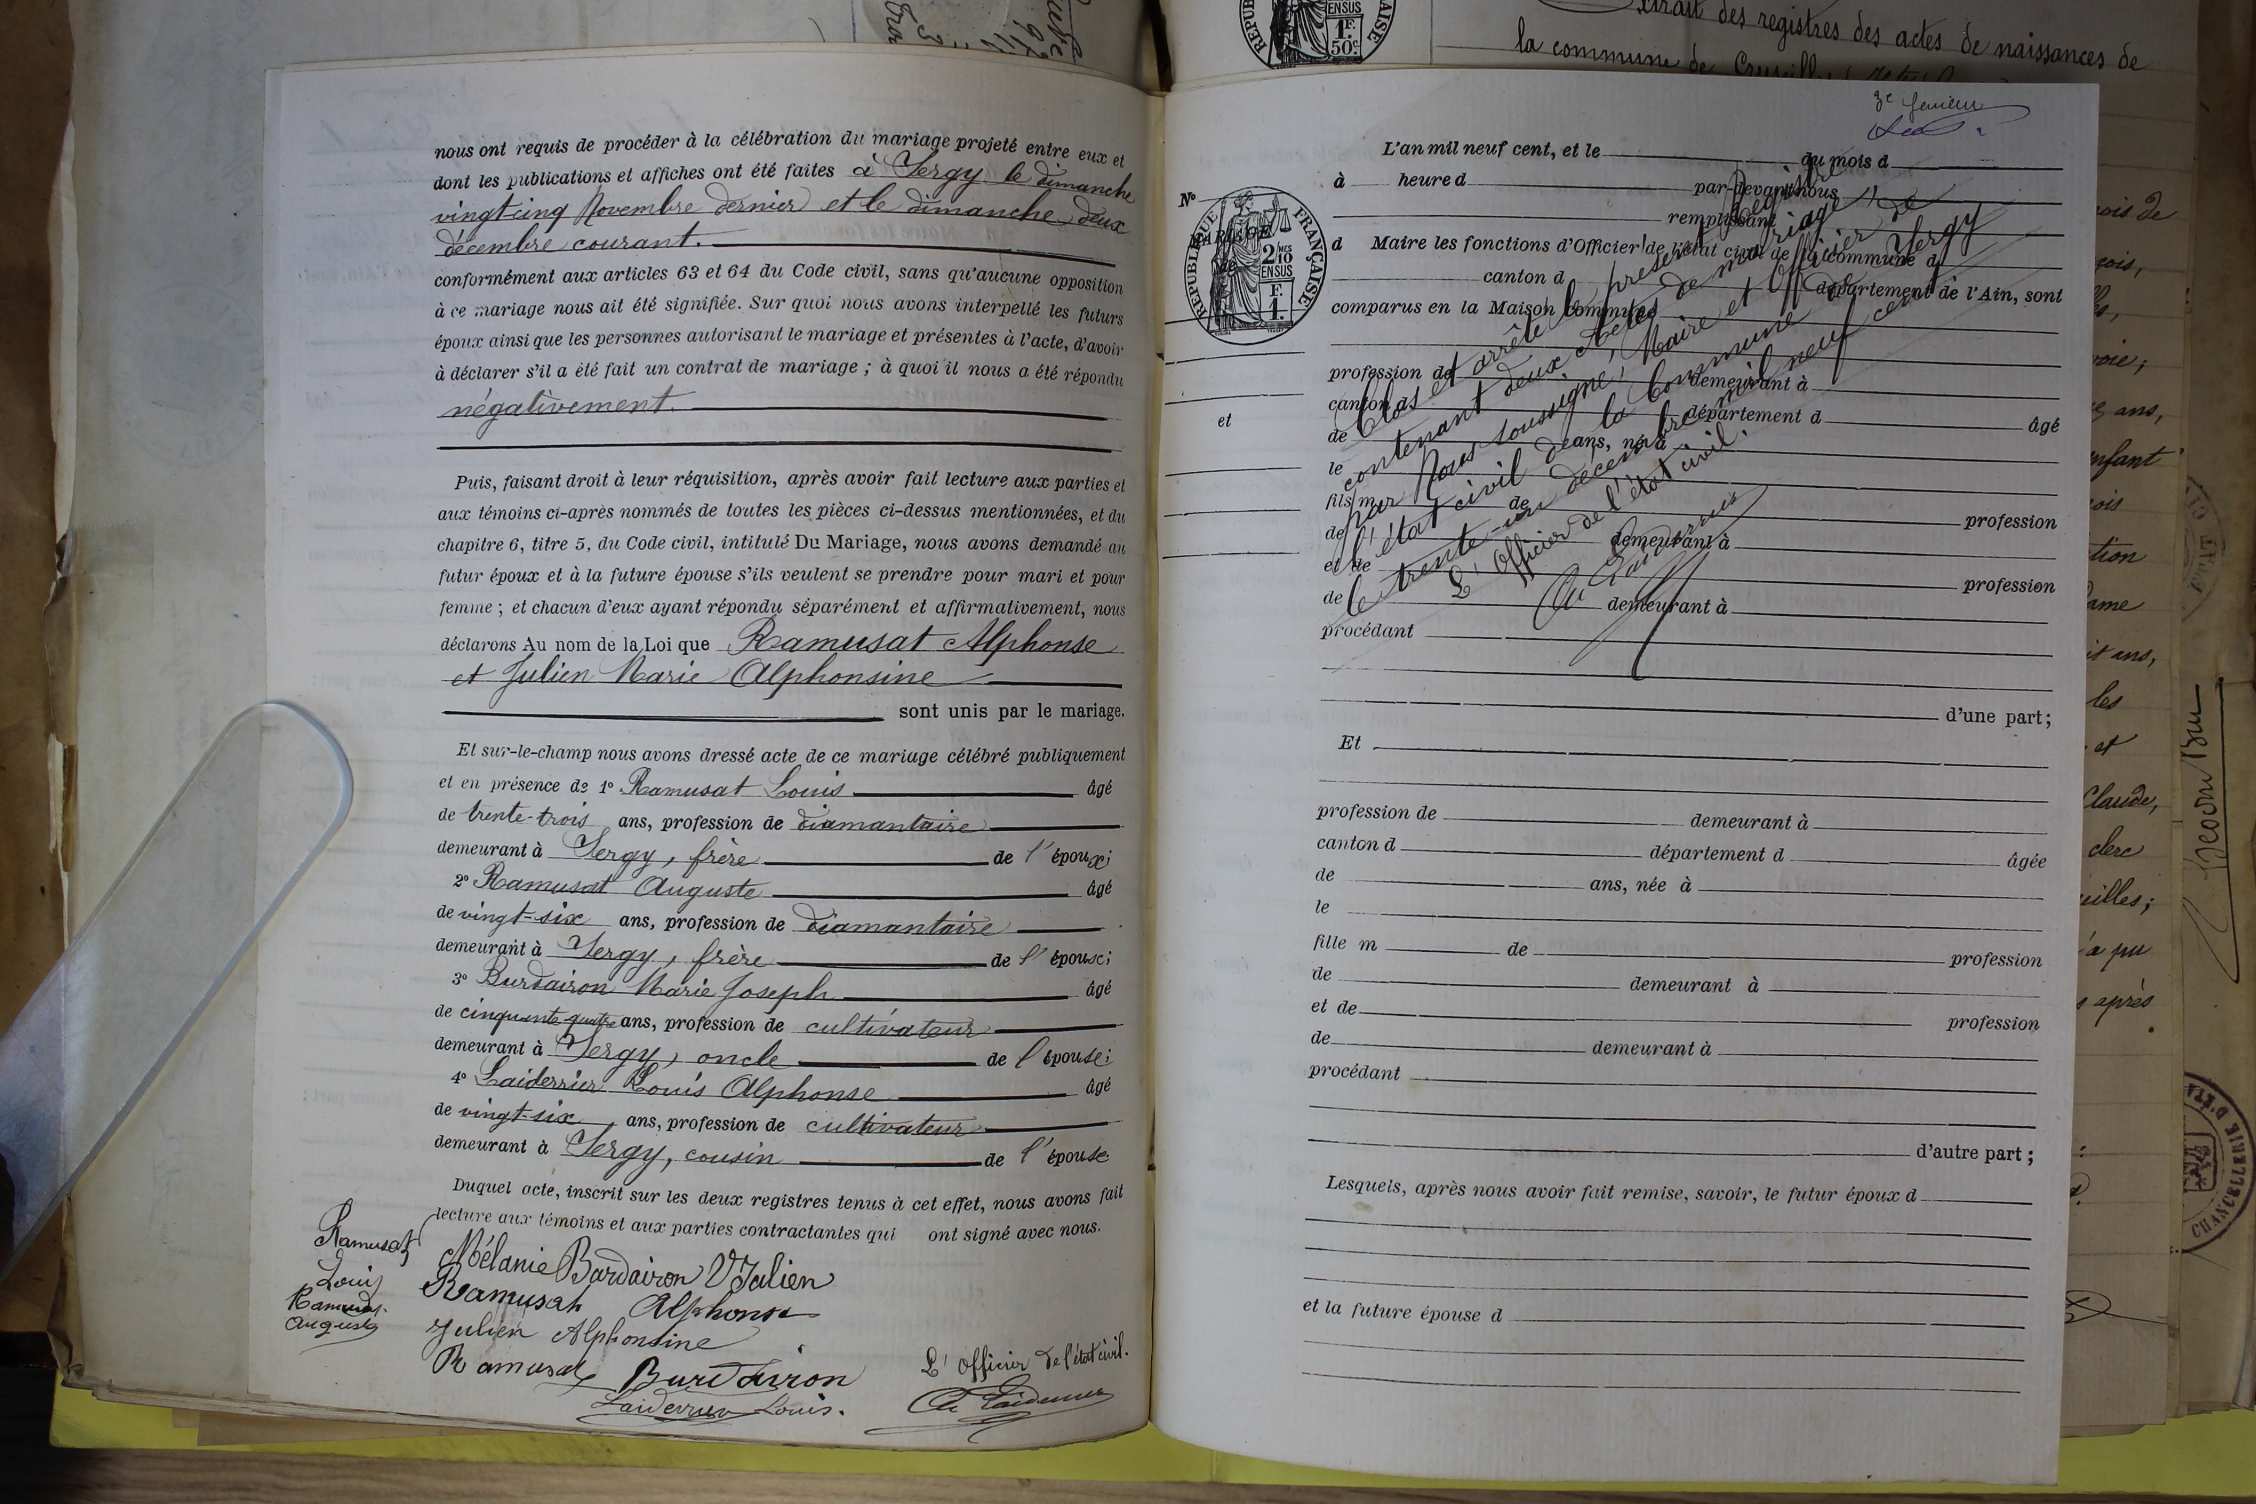 nous ont requis de procéder à la célébration du mariage projeté entre eux et
dont les publications et affiches ont été faites à Sergy le dimanche
vingt cinq Novembre dernier et le dimanche deux
décembre courant.
conformément aux articles 63 et 64 du Code civil, sans qu'aucune opposition
à ce mariage nous ait été signifiée. Sur quoi nous avons interpellé les futurs
époux ainsi que les personnes autorisant le mariage et présentes à l'acte, d'avoir
à déclarer s'il a été fait un contrat de mariage ; à quoi il nous a été répondu
négativement.
Puis, faisant droit à leur réquisition, après avoir fait lecture aux parties et
aux témoins ci-après nommés de toutes les pièces ci-dessus mentionnées, et du
chapitre 6, titre 5, du Code civil, intitulé Du Mariage, nous avons demandé au
futur époux et à la future épouse s'ils veulent se prendre pour mari et pour
femme ; et chacun d'eux ayant répondu séparément et affirmativement, nous
déclarons Au nom de la Loi que Ramusat Alphonse
et Julien Marie Alphonsine
sont unis par le mariage.
Et sur-le-champ nous avons dressé acte de ce mariage célébré publiquement
et en présence de 1° Ramusat Louis âgé
de trente-trois ans, profession de diamantaire
demeurant à Sergy, frère de l'époux;
2° Ramusat Auguste âgé
de vingt-six ans, profession de diamantaire
demeurant à Sergy, frère de l'épouse;
3° Burdairon Marie Joseph âgé
de cinquante quatre ans, profession de cultivateur
demeurant à Sergy, oncle de l'épouse;
4° Laiderrier Louis Alphonse âgé
de vingt-six ans, profession de cultivateur
demeurant à Sergy, cousin de l'épouse
Duquel acte, inscrit sur les deux registres tenus à cet effet, nous avons fait
lecture aux témoins et aux parties contractantes qui ont signé avec nous.
Ramusat
Louis
Ramusat
Auguste
Mélanie Bardairon V Julien
Ramusat Alphonse
Julien Alphonsine
Ramusat Burdairon
Laiderrier Louis.
L'officier de l'état civil.
Laiderrier
RÉPUBLIQUE FRANÇAISE
EN SUS
1 F.
50 c.
Extrait des registres des actes de naissances de
la commune de
L'an mil neuf cent, et le du mois d
à heure d par-devant nous
N°
RÉPUBLIQUE FRANÇAISE
2/10 MES
EN SUS
F.
1.
MARIAGE
de
et
remplissant
d Maire les fonctions d'Officier de l'état civil de la commune d
canton d département de l'Ain, sont
comparus en la Maison commune
profession de demeurant à
canton d département d âgé
de ans, né à
le
fils m de profession
de demeurant à
et de profession
de demeurant à
procédant
d'une part;
Clos et arrêté le présent Registre
contenant deux Actes de mariage,
par Nous soussigné, Maire et Officier de
l'état civil de la Commune de Sergy
le trente-un décembre mil neuf cent
L'Officier de l'état civil.
Laiderrier
Et
profession de demeurant à
canton d département d âgée
de ans, née à
le
fille m de profession
de demeurant à
et de profession
de demeurant à
procédant
d'autre part;
Lesquels, après nous avoir fait remise, savoir, le futur époux d
et la future épouse d
mois de
ans,
enfant
les
et
Claude,
clerc
a pu
après
CHANCELLERIE D'ÉTAT